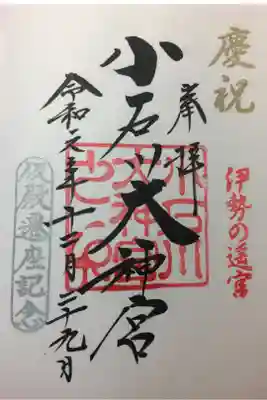 慶祝
伊勢の遥宮
奉拝
小石川大神宮
令和元年十二月二十九日
仮殿遷座記念